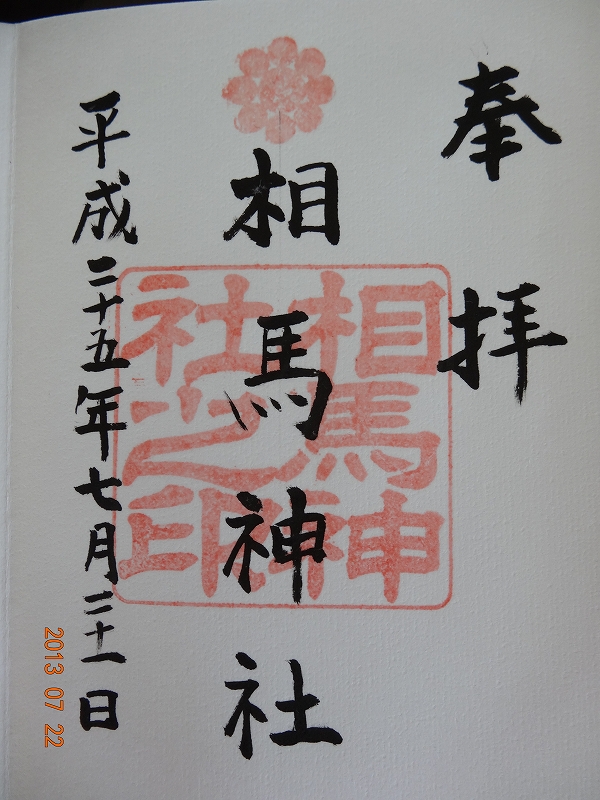 奉拝
相馬神社
相馬神
社之印
平成二十五年七月二十一日
2013 07 22